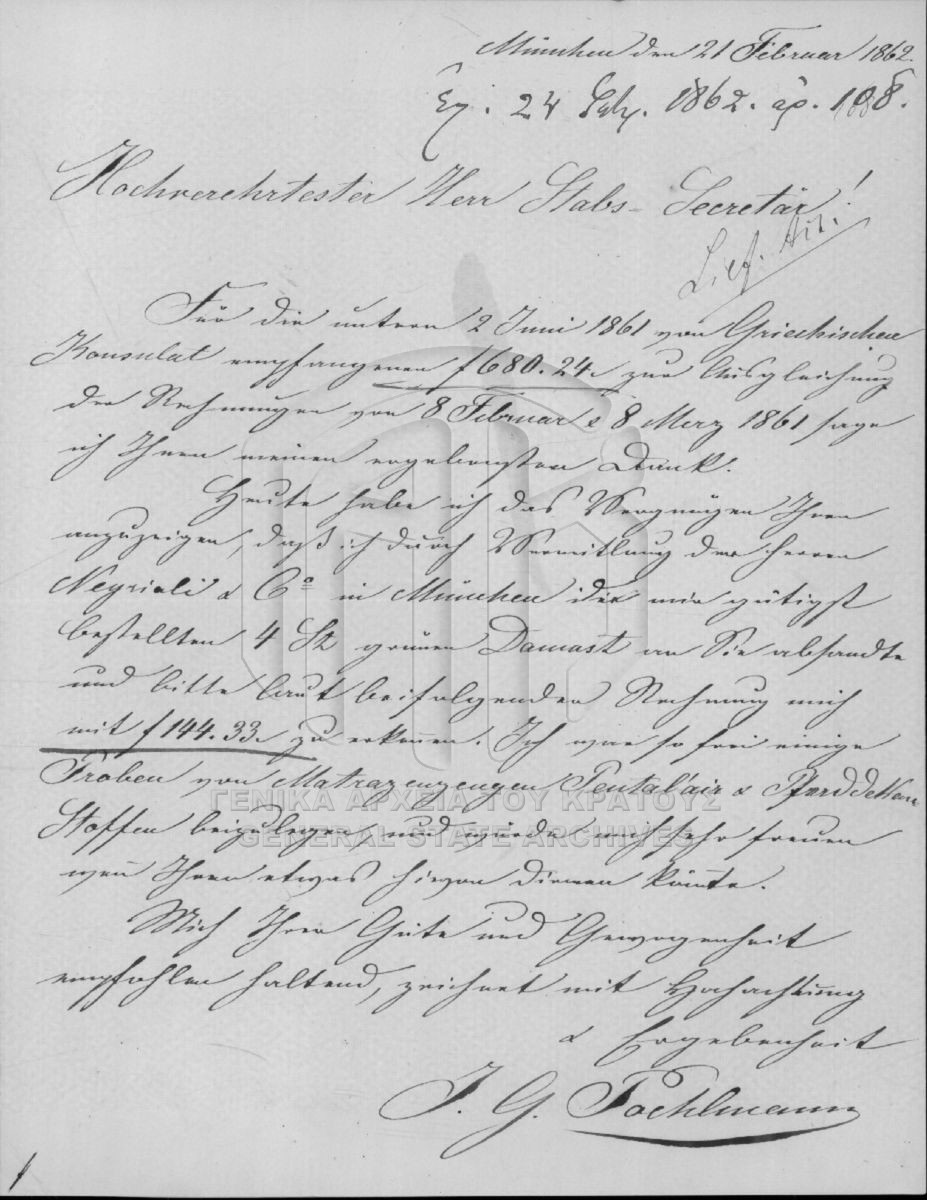 München den 21 Februar 1862.
24 1862. ἀρ. 108.
Hochverehrtester Herr Stabs-Secretär!
Für die unterm 2 Juni 1861 von Griechischen
Konsulat empfangenen f 680.24. zur Ausgleichung
der Rechnungen von 8 Februar & 8 Merz 1861 sage
ich Ihnen meinen ergebensten Dank.
Heute habe ich das Vergnügen Ihnen
anzuzeigen, daß ich durch Vermittlung der Herren
Negrioli & Co in München die mir gütigst
bestellten 4 St grünen Damast an Sie absandte
und bitte laut beifolgender Rechnung mich
mit f 144.33. zu erkennen. Ich war so frei einige
Proben von Matrazenzeugen & Pferddeken
Stoffen beizulegen, und würde mich sehr freuen
wenn Ihnen etwas hievon dienen könnte.
Mich Ihrer Güte und Gewogenheit
empfohlen haltend, zeichnet mit Hochachtung
& Ergebenheit
J. G. Poehlmann
ΓΕΝΙΚΑ ΑΡΧΕΙΑ ΤΟΥ ΚΡΑΤΟΥΣ
GENERAL STATE ARCHIVES